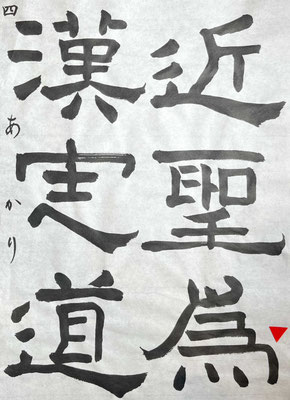 近聖為
漢定道
四 あかり